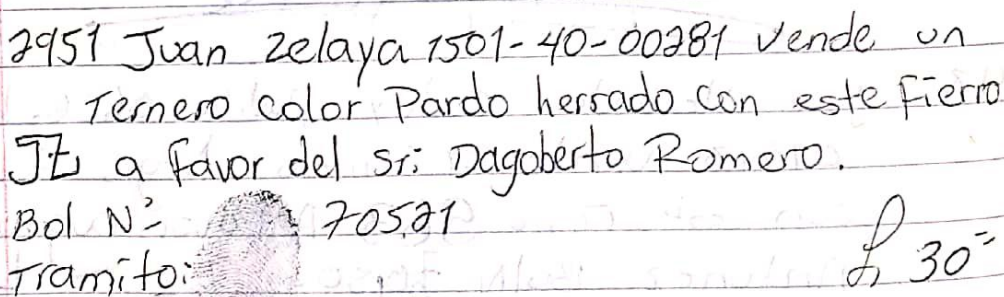 2951 Juan Zelaya 1501-40-00281 vende un
Ternero color Pardo herrado con este Fierro
JZ a favor del Sr: Dagoberto Romero.
Bol Nº 70521
Tramito: L 30=